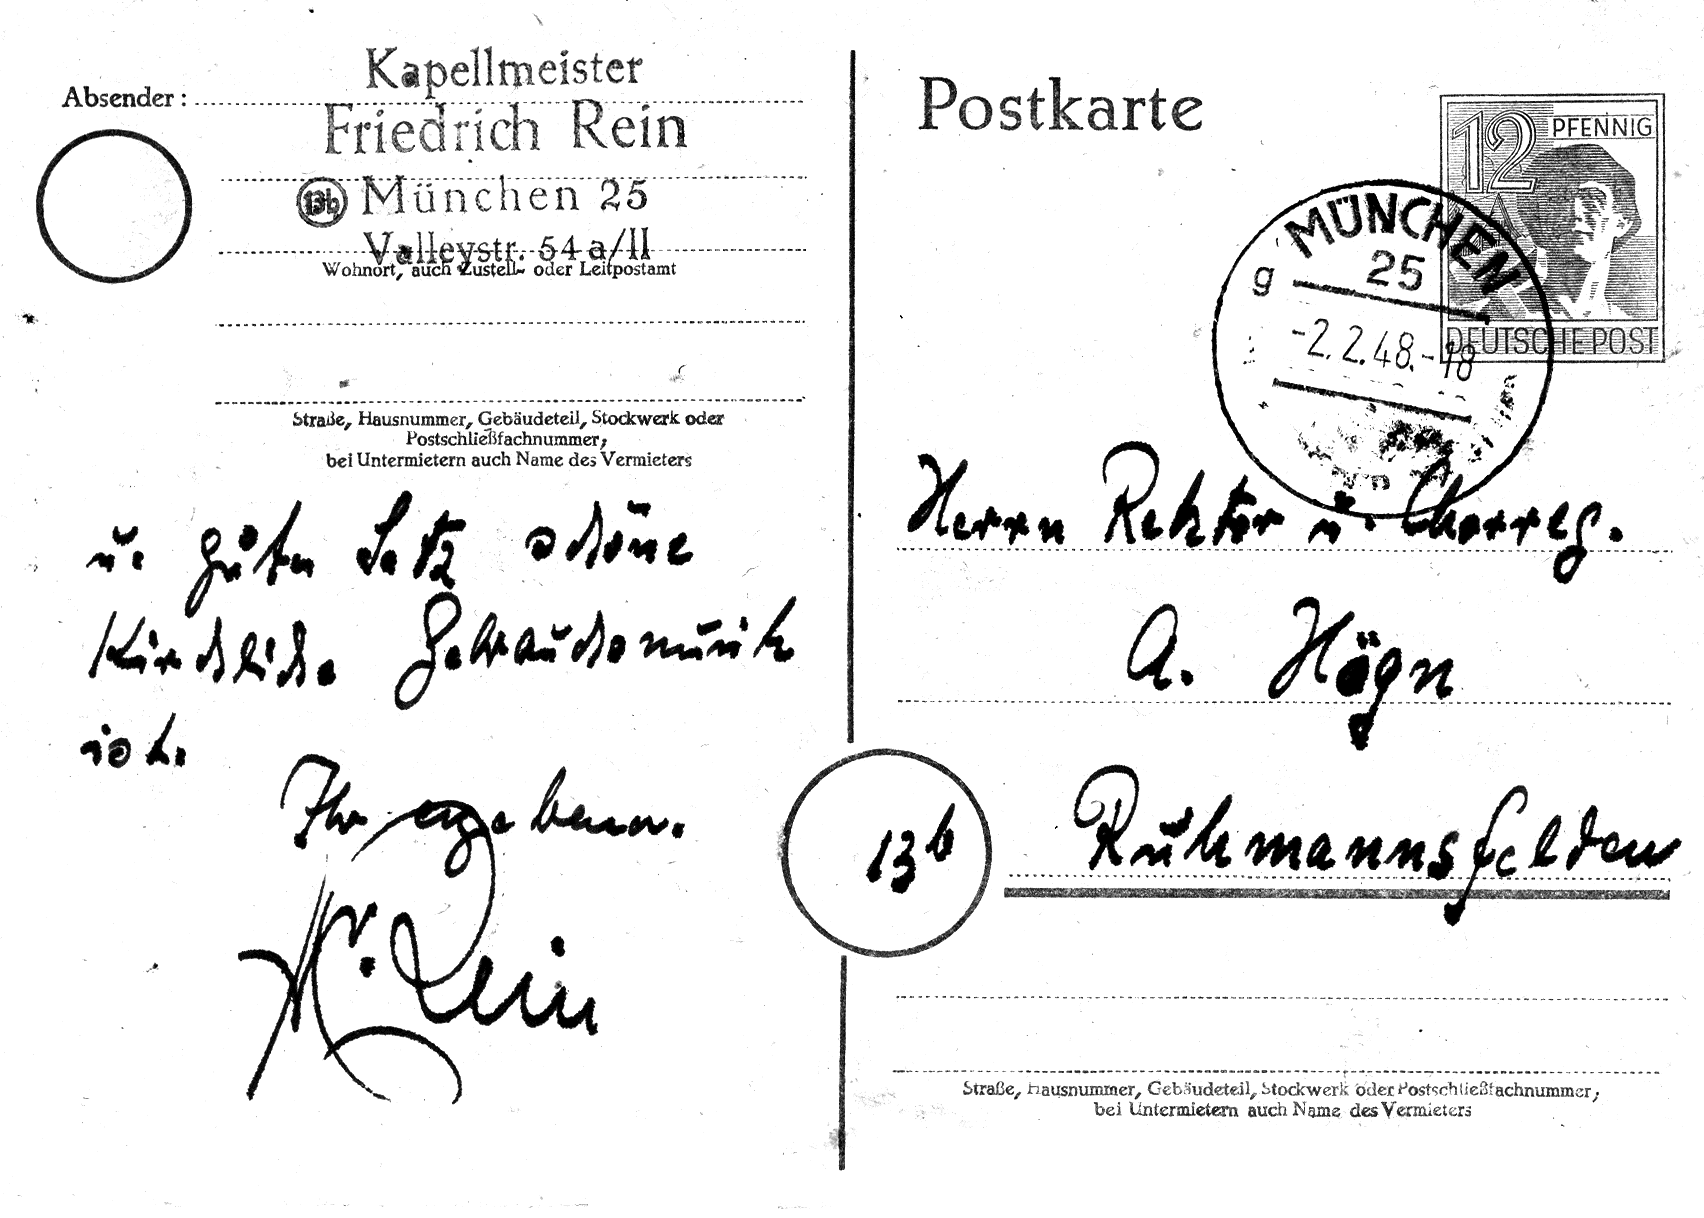 Kapellmeister
Absender:
Friedrich Rein
13b München 25
Valleystr. 54 a/II
Wohnort, auch Zustell- oder Leitpostamt
Straße, Hausnummer, Gebäudeteil, Stockwerk oder
Postschließfachnummer;
bei Untermietern auch Name des Vermieters
u. guten Satz schöne
kirchliche Gebrauchsmusik
ist.
Ihr ergebener.
Fr. Rein
Postkarte
12 PFENNIG
DEUTSCHE POST
MÜNCHEN
25
g
-2.2.48.-18
Herrn Rektor u. Chorreg.
A. Högn
13b
Ruhmannsfelden
Straße, Hausnummer, Gebäudeteil, Stockwerk oder Postschließfachnummer;
bei Untermietern auch Name des Vermieters